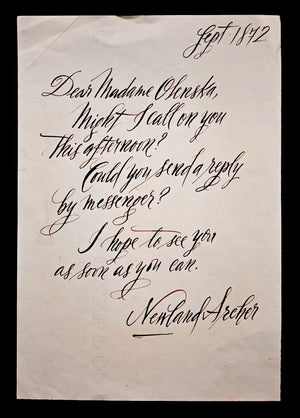 Sept 1872
Dear Madame Olenska,
Might I call on you
this afternoon?
Could you send a reply
by messenger?
I hope to see you
as soon as you can.
Newland Archer